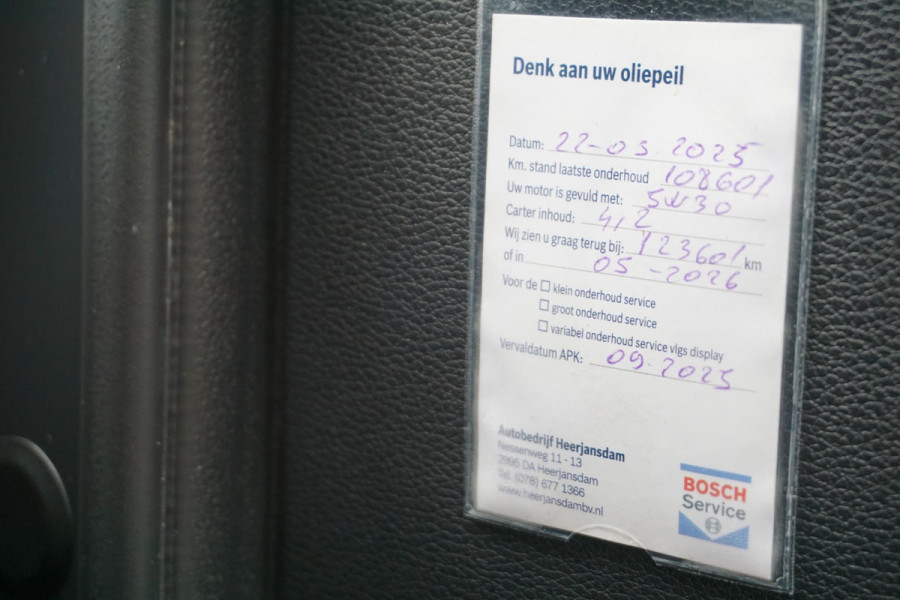 Denk aan uw oliepeil
Datum: 22-05.2025
Km. stand laatste onderhoud 108601
Uw motor is gevuld met: 5W30
Carter inhoud: 4,2
Wij zien u graag terug bij: 123601 km
of in 05-2026
Voor de ☐ klein onderhoud service
☐ groot onderhoud service
☐ variabel onderhoud service vlgs display
Vervaldatum APK: 09.2025
Autobedrijf Heerjansdam
Nessenweg 11 - 13
2995 DA Heerjansdam
Tel. (078) 677 1366
www.heerjansdambv.nl
BOSCH
Service